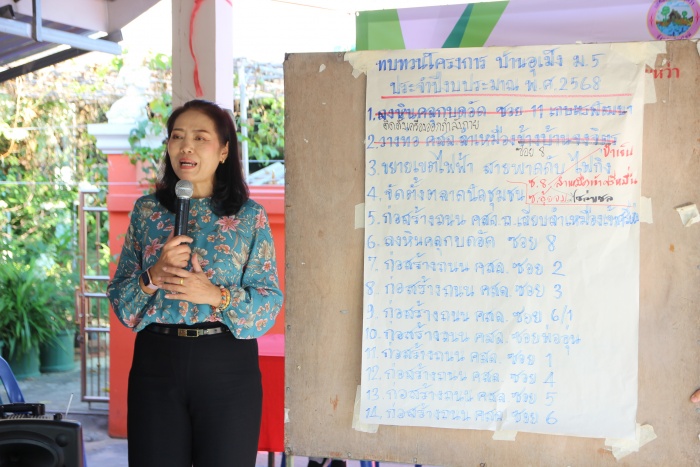 ทบทวนโครงการ บ้านอุเม็ง ม.5
ประจำปีงบประมาณ พ.ศ.2568
1. ลงหินคลุกบดอัด ซอย 11 เกษตรพัฒนา
2. วางท่อ คสล.
ซอย 8
3. ขยายเขตไฟฟ้า สายพาดดับ ไฟกิ่ง
4. จัดตั้งตลาดนัดชุมชน
5. ก่อสร้างถนน คสล.
6. ลงหินคลุกบดอัด ซอย 8
7. ก่อสร้างถนน คสล. ซอย 2
8. ก่อสร้างถนน คสล. ซอย 3
9. ก่อสร้างถนน คสล. ซอย 6/1
10. ก่อสร้างถนน คสล. ซอยพ่ออุ่น
11. ก่อสร้างถนน คสล. ซอย 1
12. ก่อสร้างถนน คสล. ซอย 4
13. ก่อสร้างถนน คสล. ซอย 5
14. ก่อสร้างถนน คสล. ซอย 6